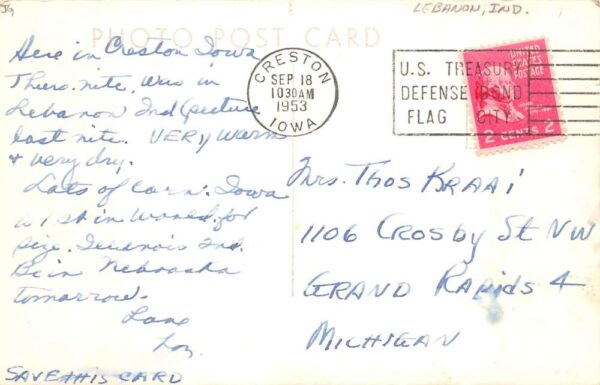 LEBANON, IND.
PHOTO POST CARD
Here in Creston Iowa
Thurs. nite. Was in
Lebanon Ind (picture
last nite. VERY warm
& very dry.
Lots of corn. Iowa
is 1st in World for
size. Illinois 2nd.
Be in Nebraska
tomorrow.
Love
SAVE THIS CARD
CRESTON
SEP 18
10 30 AM
1953
IOWA
U.S. TREASURY
DEFENSE BOND
FLAG CITY
UNITED
STATES
POSTAGE
2 CENTS 2
Mrs. Thos KRAAI
1106 CROSBY St NW
GRAND RAPIDS 4
MICHIGAN